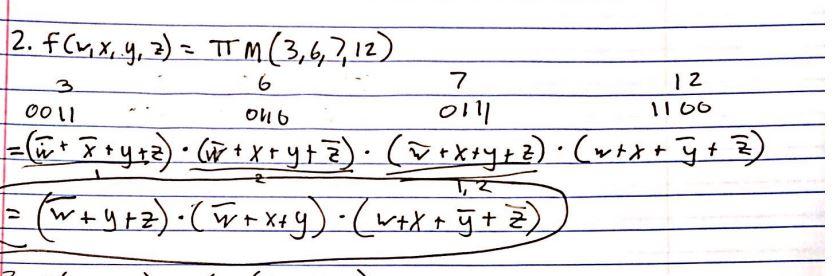 2. f(w, x, y, z) = ΠM(3,6,7,12)
3 6 7 12
0011 0110 0111 1100
= (w̅ + x̅ + y + z) · (w̅ + x + y + z̅) · (w̅ + x + y + z) · (w + x + y̅ + z̅)
1 2 1, 2
= (w̅ + y + z) · (w̅ + x + y) · (w + x + y̅ + z̅)